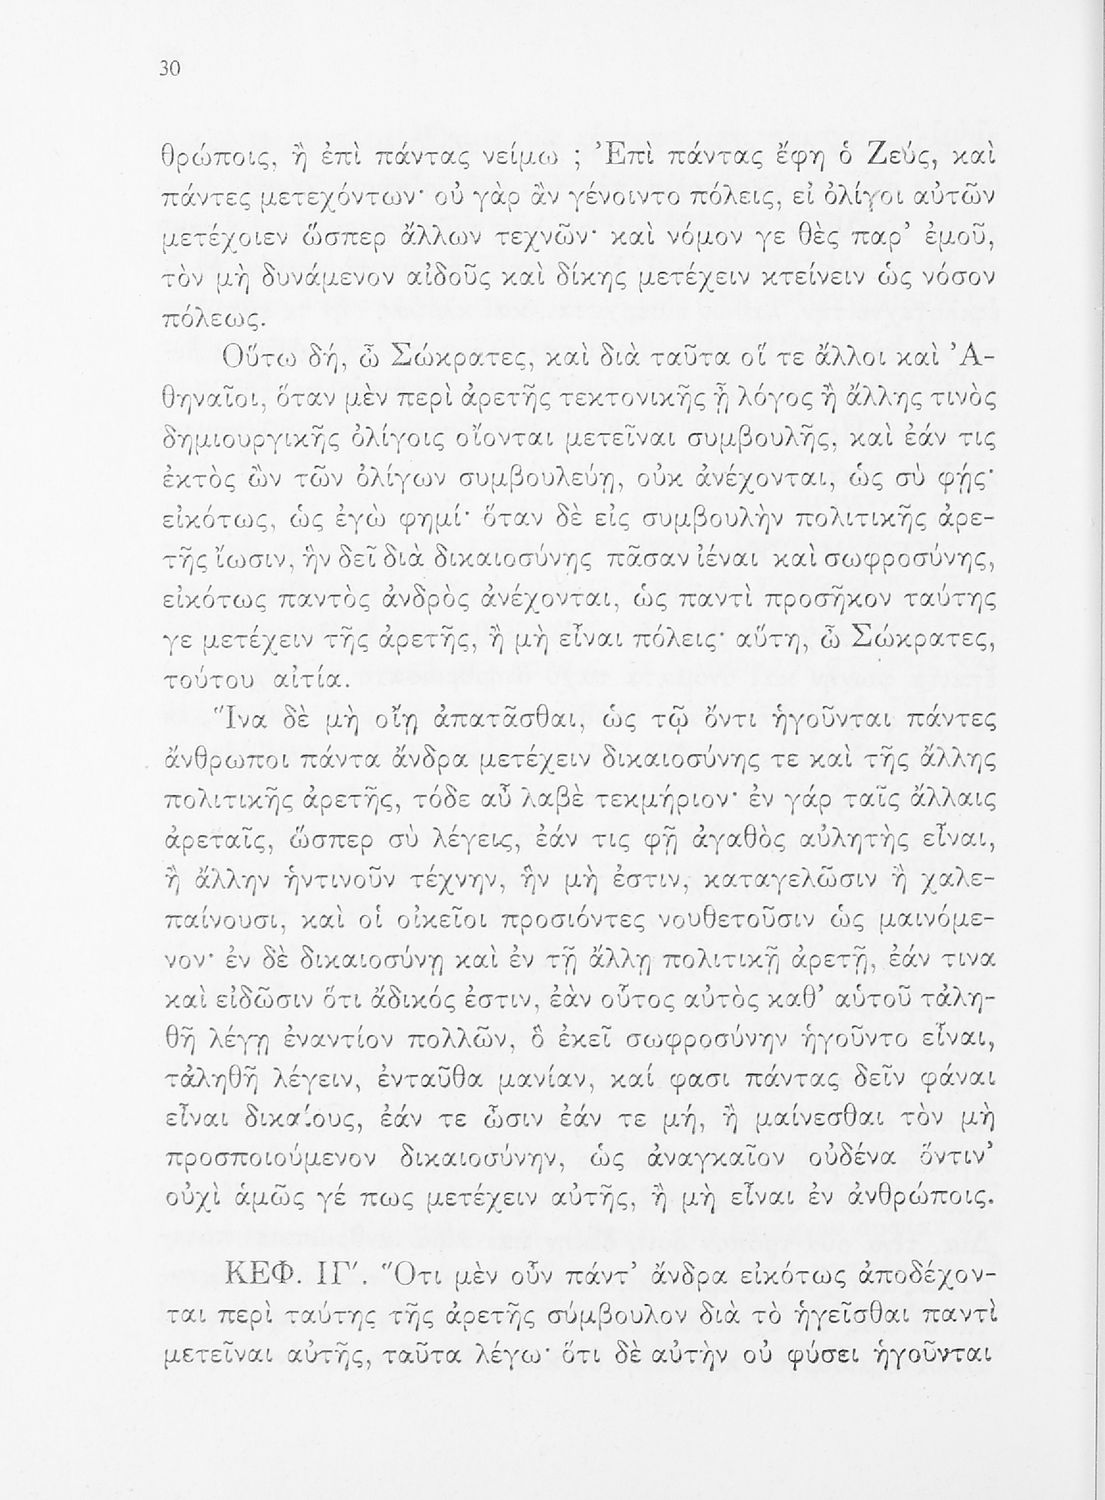 30
θρώποις, ἢ ἐπὶ πάντας νείμω ; Ἐπὶ πάντας ἔφη ὁ Ζεύς, καὶ
πάντες μετεχόντων· οὐ γὰρ ἂν γένοιντο πόλεις, εἰ ὀλίγοι αὐτῶν
μετέχοιεν ὥσπερ ἄλλων τεχνῶν· καὶ νόμον γε θὲς παρ’ ἐμοῦ,
τὸν μὴ δυνάμενον αἰδοῦς καὶ δίκης μετέχειν κτείνειν ὡς νόσον
πόλεως.
Οὕτω δή, ὦ Σώκρατες, καὶ διὰ ταῦτα οἵ τε ἄλλοι καὶ Ἀ-
θηναῖοι, ὅταν μὲν περὶ ἀρετῆς τεκτονικῆς ᾖ λόγος ἢ ἄλλης τινὸς
δημιουργικῆς ὀλίγοις οἴονται μετεῖναι συμβουλῆς, καὶ ἐάν τις
ἐκτὸς ὢν τῶν ὀλίγων συμβουλεύῃ, οὐκ ἀνέχονται, ὡς σὺ φῄς·
εἰκότως, ὡς ἐγὼ φημί· ὅταν δὲ εἰς συμβουλὴν πολιτικῆς ἀρε-
τῆς ἴωσιν, ἣν δεῖ διὰ δικαιοσύνης πᾶσαν ἰέναι καὶ σωφροσύνης,
εἰκότως παντὸς ἀνδρὸς ἀνέχονται, ὡς παντὶ προσῆκον ταύτης
γε μετέχειν τῆς ἀρετῆς, ἢ μὴ εἶναι πόλεις· αὕτη, ὦ Σώκρατες,
τούτου αἰτία.
Ἵνα δὲ μὴ οἴῃ ἀπατᾶσθαι, ὡς τῷ ὄντι ἡγοῦνται πάντες
ἄνθρωποι πάντα ἄνδρα μετέχειν δικαιοσύνης τε καὶ τῆς ἄλλης
πολιτικῆς ἀρετῆς, τόδε αὖ λαβὲ τεκμήριον· ἐν γάρ ταῖς ἄλλαις
ἀρεταῖς, ὥσπερ σὺ λέγεις, ἐάν τις φῇ ἀγαθὸς αὐλητὴς εἶναι,
ἢ ἄλλην ἡντινοῦν τέχνην, ἣν μὴ ἐστιν, καταγελῶσιν ἢ χαλε-
παίνουσι, καὶ οἱ οἰκεῖοι προσιόντες νουθετοῦσιν ὡς μαινόμε-
νον· ἐν δὲ δικαιοσύνῃ καὶ ἐν τῇ ἄλλῃ πολιτικῇ ἀρετῇ, ἐάν τινα
καὶ εἰδῶσιν ὅτι ἄδικός ἐστιν, ἐὰν οὗτος αὐτὸς καθ’ αὑτοῦ τἀλη-
θῆ λέγῃ ἐναντίον πολλῶν, ὃ ἐκεῖ σωφροσύνην ἡγοῦντο εἶναι,
τἀληθῆ λέγειν, ἐνταῦθα μανίαν, καί φασι πάντας δεῖν φάναι
εἶναι δικαίους, ἐάν τε ὦσιν ἐάν τε μή, ἢ μαίνεσθαι τὸν μὴ
προσποιούμενον δικαιοσύνην, ὡς ἀναγκαῖον οὐδένα ὅντιν’
οὐχὶ ἁμῶς γέ πως μετέχειν αὐτῆς, ἢ μὴ εἶναι ἐν ἀνθρώποις.
ΚΕΦ. ΙΓ′. Ὅτι μὲν οὖν πάντ’ ἄνδρα εἰκότως ἀποδέχον-
ται περὶ ταύτης τῆς ἀρετῆς σύμβουλον διὰ τὸ ἡγεῖσθαι παντὶ
μετεῖναι αὐτῆς, ταῦτα λέγω· ὅτι δὲ αὐτὴν οὐ φύσει ἡγοῦνται